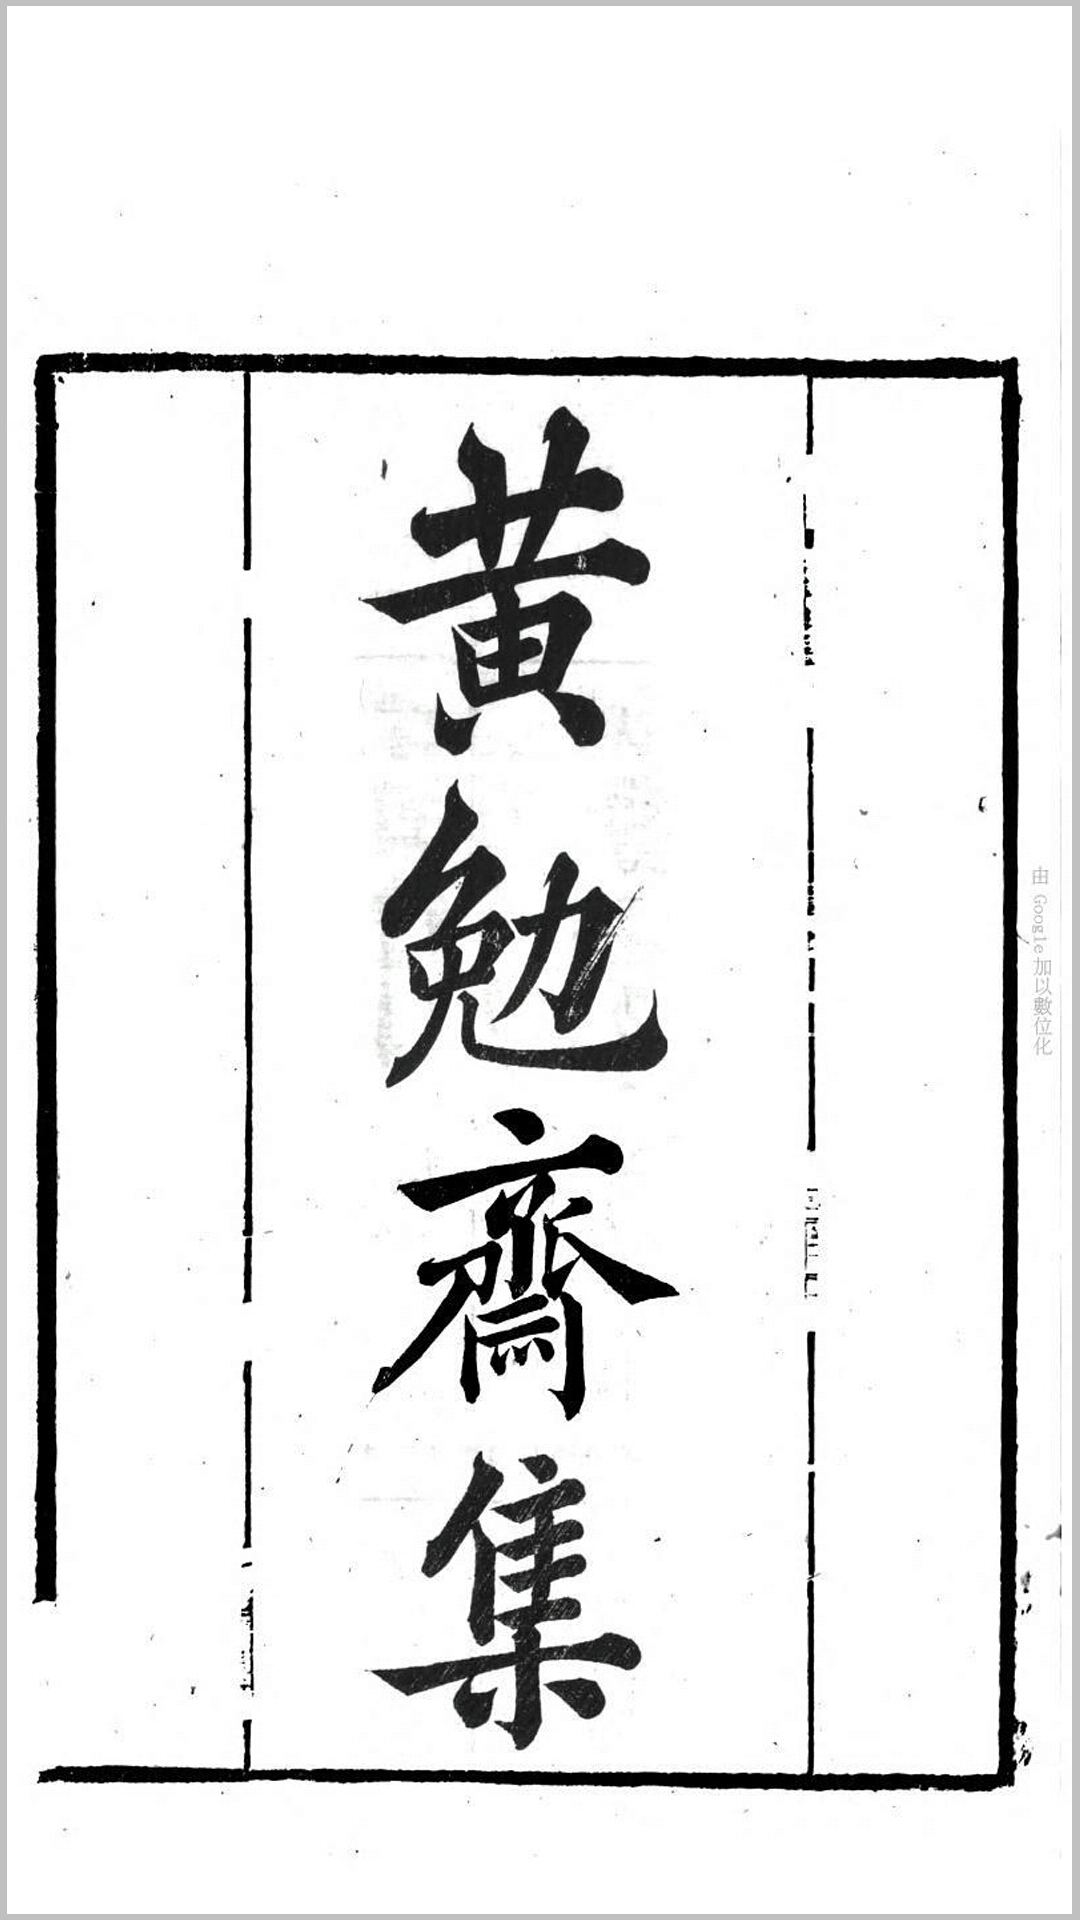 黄勉齋集
由 Google 加以數位化